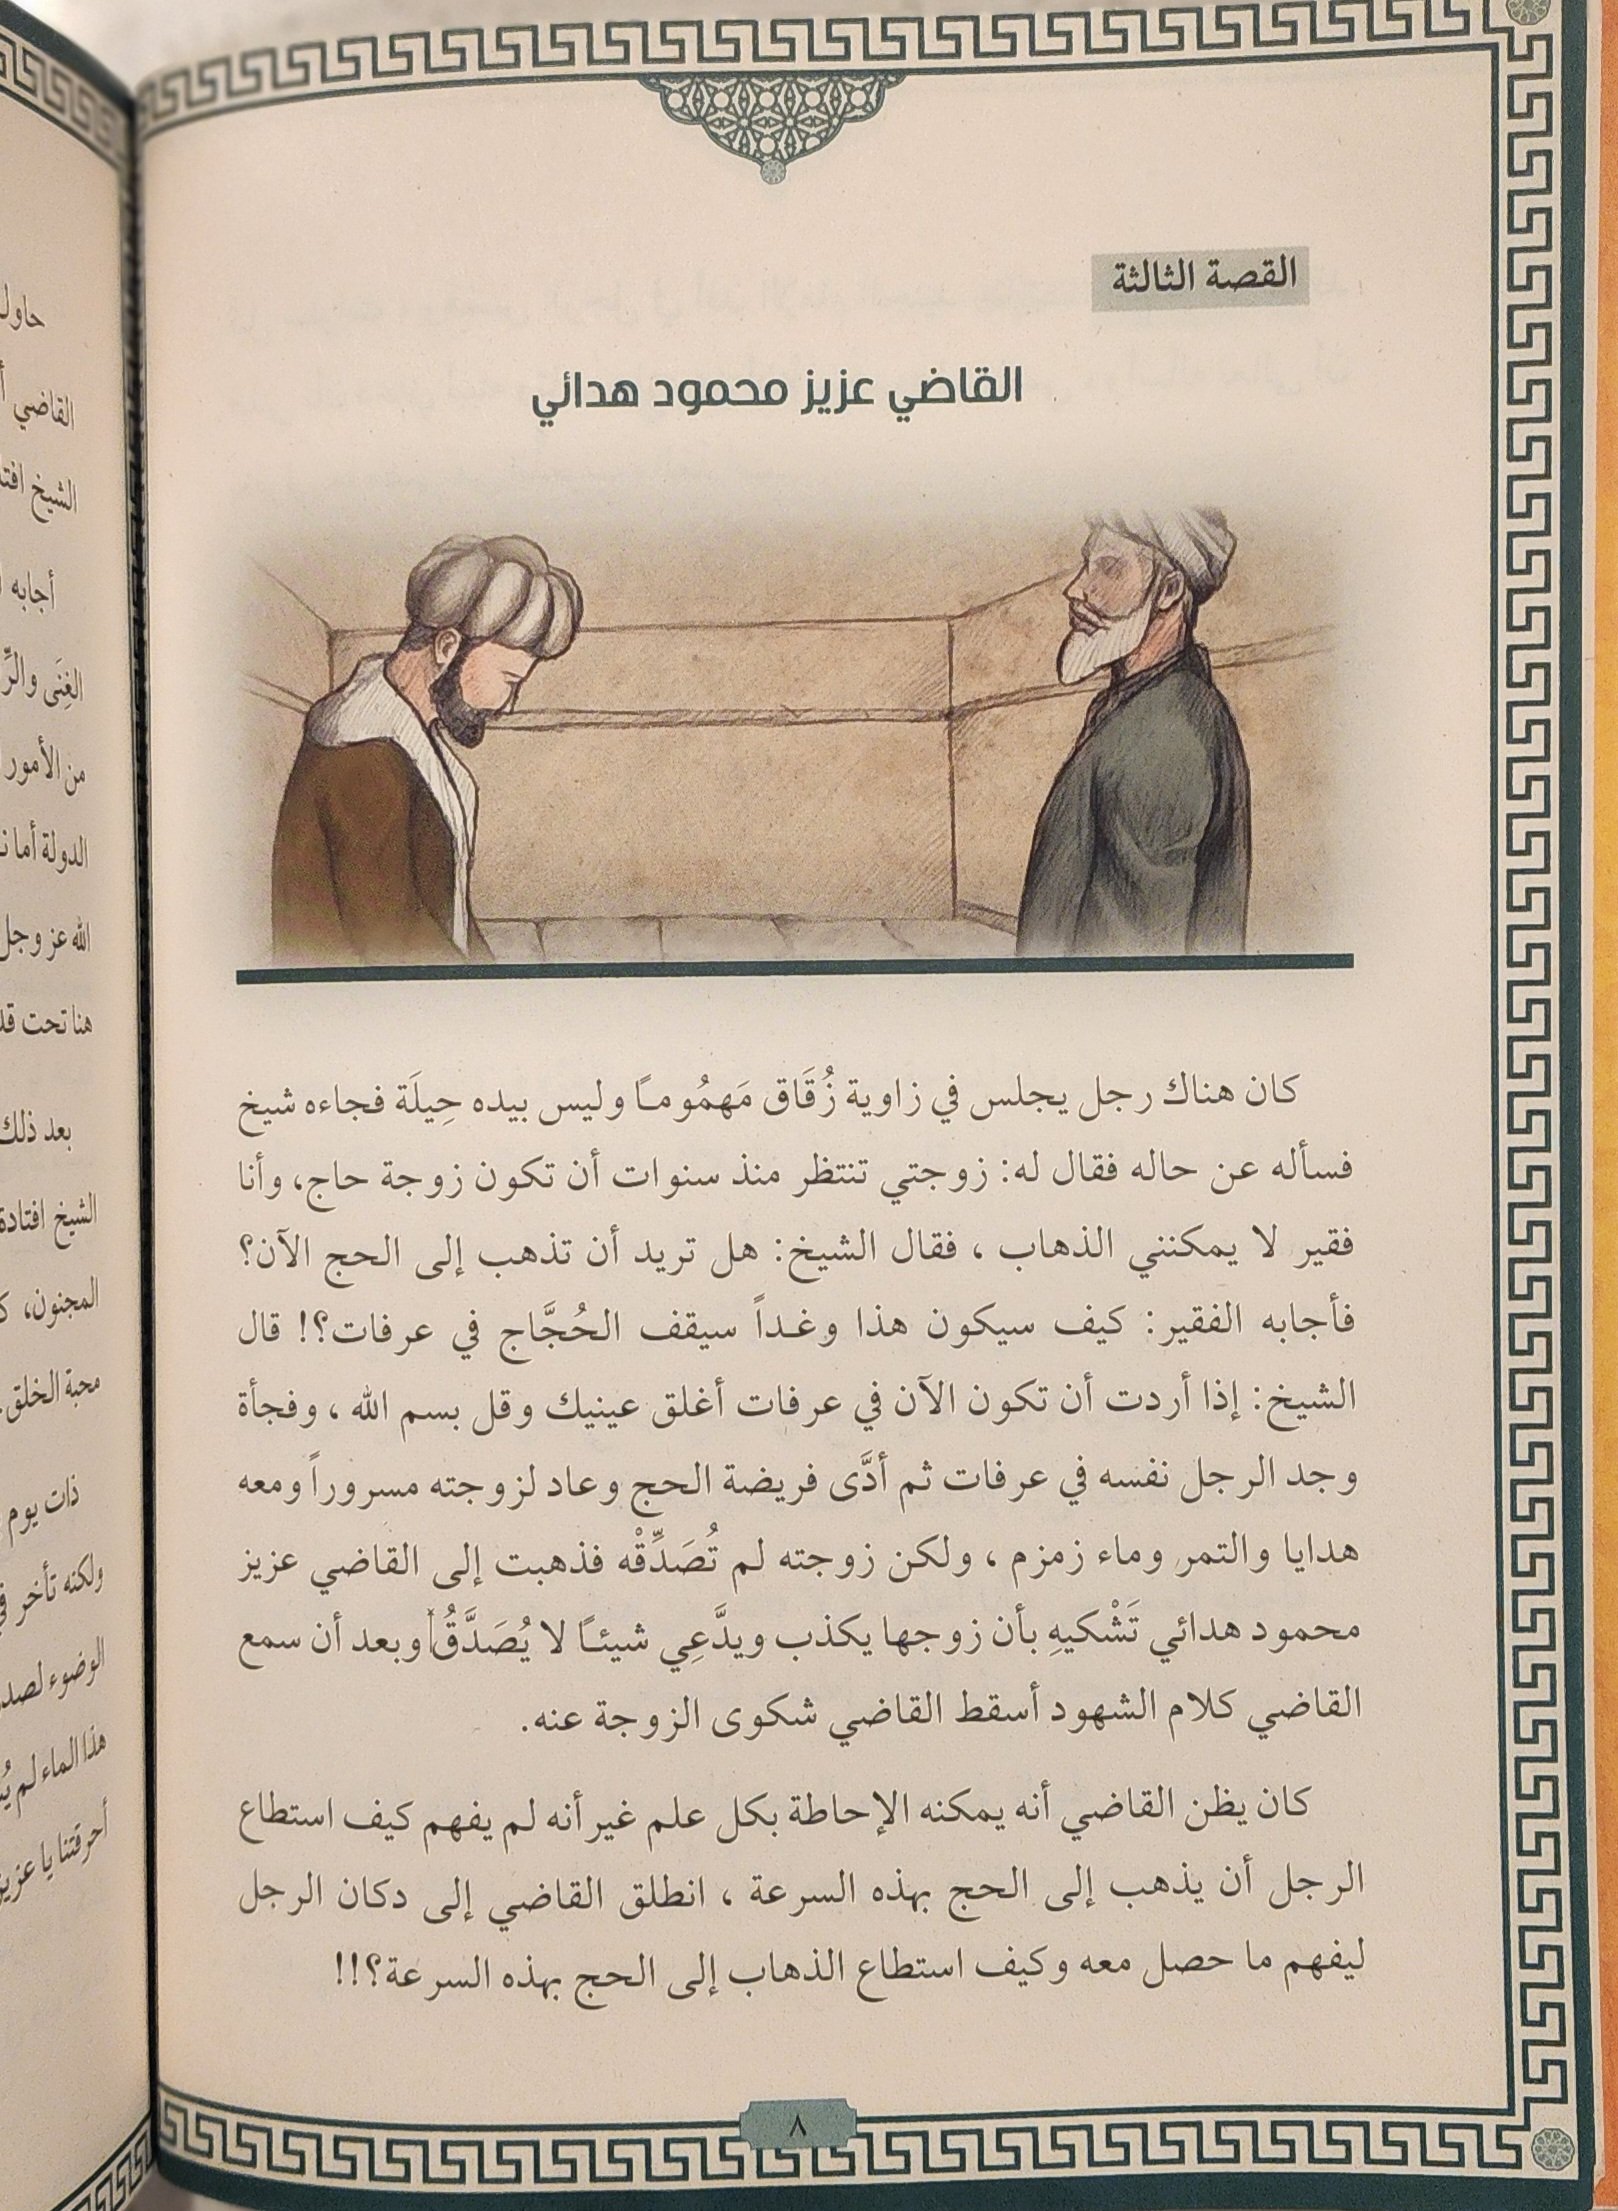 القصة الثالثة
القاضي عزيز محمود هدائي
كان هناك رجل يجلس في زاوية زُقَاق مَهمُوماً وليس بيده حِيلَة فجاءه شيخ
فسأله عن حاله فقال له: زوجتي تنتظر منذ سنوات أن تكون زوجة حاج، وأنا
فقير لا يمكنني الذهاب ، فقال الشيخ: هل تريد أن تذهب إلى الحج الآن؟
فأجابه الفقير: كيف سيكون هذا وغداً سيقف الحُجَّاج في عرفات؟! قال
الشيخ: إذا أردت أن تكون الآن في عرفات أغلق عينيك وقل بسم الله ، وفجأة
وجد الرجل نفسه في عرفات ثم أدَّى فريضة الحج وعاد لزوجته مسروراً ومعه
هدايا والتمر وماء زمزم ، ولكن زوجته لم تُصَدِّقْه فذهبت إلى القاضي عزيز
محمود هدائي تَشْكيهِ بأن زوجها يكذب ويدَّعِي شيئاً لا يُصَدَّقُ وبعد أن سمع
القاضي كلام الشهود أسقط القاضي شكوى الزوجة عنه.
كان يظن القاضي أنه يمكنه الإحاطة بكل علم غير أنه لم يفهم كيف استطاع
الرجل أن يذهب إلى الحج بهذه السرعة ، انطلق القاضي إلى دكان الرجل
ليفهم ما حصل معه وكيف استطاع الذهاب إلى الحج بهذه السرعة؟!!
٨
القاضي
الشيخ
أجابه
الغِنَى
من الأمور
الدولة أما
الله عز وجل
هنا تحت
بعد ذلك
الشيخ افتادة
المجنون،
محبة الخلق
ذات يوم
ولكنه تأخر
الوضوء
هذا الماء لم
أحرقتنا يا